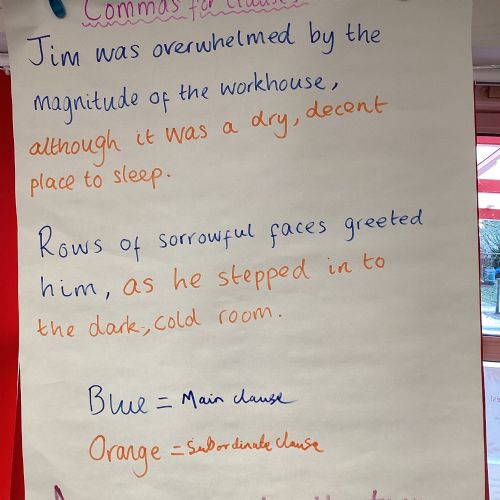 Commas for clauses
Jim was overwhelmed by the
magnitude of the workhouse,
although it was a dry, decent
place to sleep.
Rows of sorrowful faces greeted
him, as he stepped in to
the dark, cold room.
Blue = Main clause
Orange = Subordinate clause